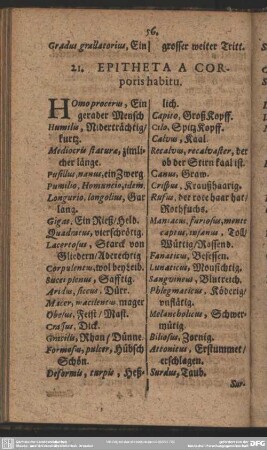 56.
Gradus grallatorius, Ein grosser weiter Tritt.
21. EPITHETA A COR-
poris habitu.
HOmo procerus, Ein
gerader Mensch
Humilis, Niderträchtig/
kurtz.
Mediocris staturæ, zimli-
cher länge.
Pusillus, nanus, ein Zwerg
Pumilio, Homuncio, idem.
Longurio, longolius, Gar
lang.
Gigas, Ein Rieß/Held.
Quadratus, vierschrötig.
Lacertosus, Starck von
Gliedern/Aderechtig
Corpulentus, wol beyleib.
Succi plenus, Safftig.
Aridus, siccus, Dürr.
Macer, macilentus mager
Obesus, Feist/Mast.
Crassus, Dick.
Gracilis, Rhan/Dünne.
Formosus, pulcer, Hübsch
Schön.
Deformis, turpis, Heß-
lich.
Capito, Groß Kopff.
Cilo, Spitz Kopff.
Calvus, Kaal.
Recalvus, recalvaster, der
ob der Stirn kaal ist.
Canus, Graw.
Crispus, Kraußhaarig.
Rufus, der rote haar hat/
Rothfuchs.
Maniacus, furiosus, mente
captus, insanus, Toll/
Wüttig/Rossend.
Fanaticus, Besessen.
Lunaticus, Monsichtig.
Sanguineus, Blutreich.
Phlegmaticus, Köderig/
unflätig.
Melancholicus, Schwer-
mütig.
Biliosus, Zornig.
Attonitus, Erstummet/
erschlagen.
Surdus, Taub.
Sur-